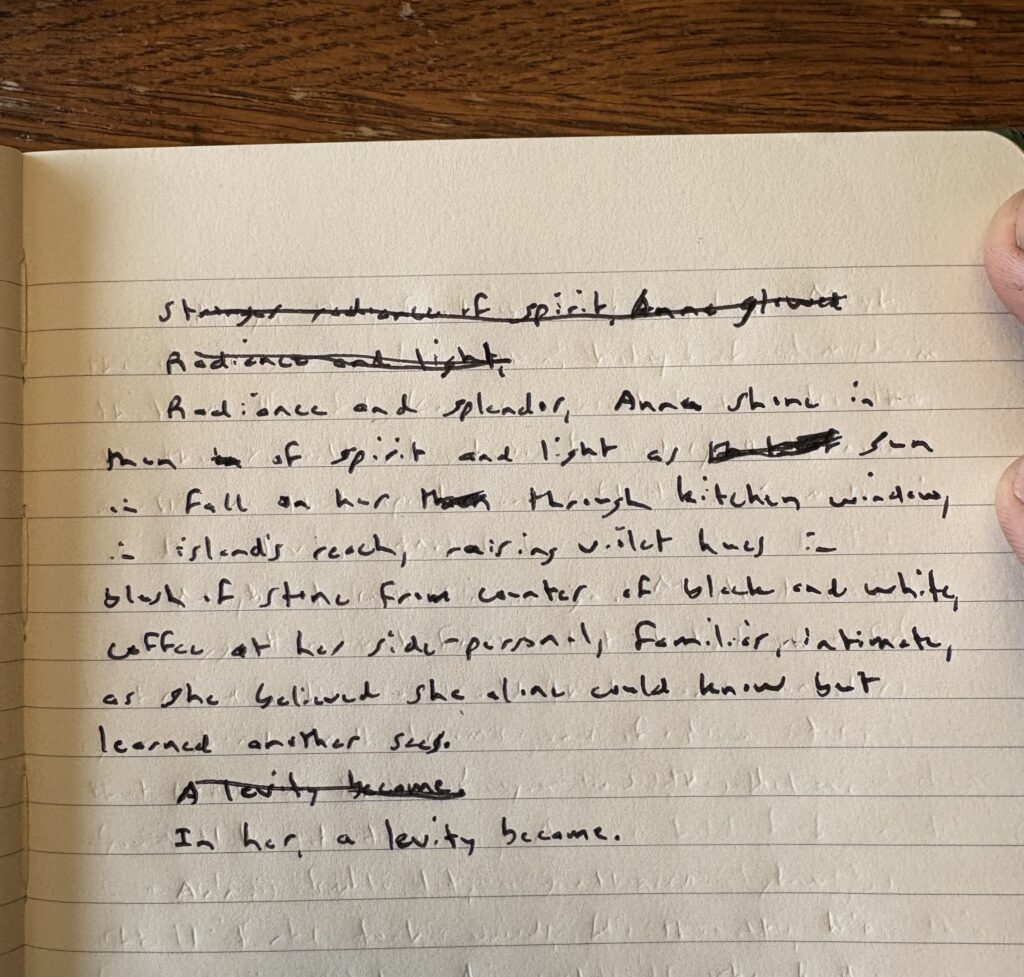 Stranger radiance of spirit, Anna glowed
Radiance and light,
Radiance and splendor, Anna shone in
them of spirit and light as sun
in fall on her through kitchen window,
in island's reach, raising violet hues in
blush of stone from counter of black and white,
coffee at her side-personal, familiar, intimate,
as she believed she alone could know but
learned another sees.
A levity became.
In her, a levity became.